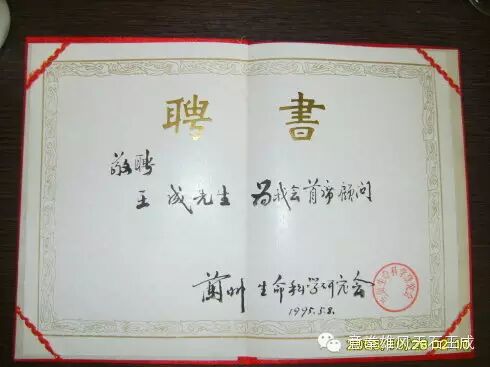 聘書
敬聘
王成先生 为我会首席顾问
蘭州生命科学研究会
1995.5.8.